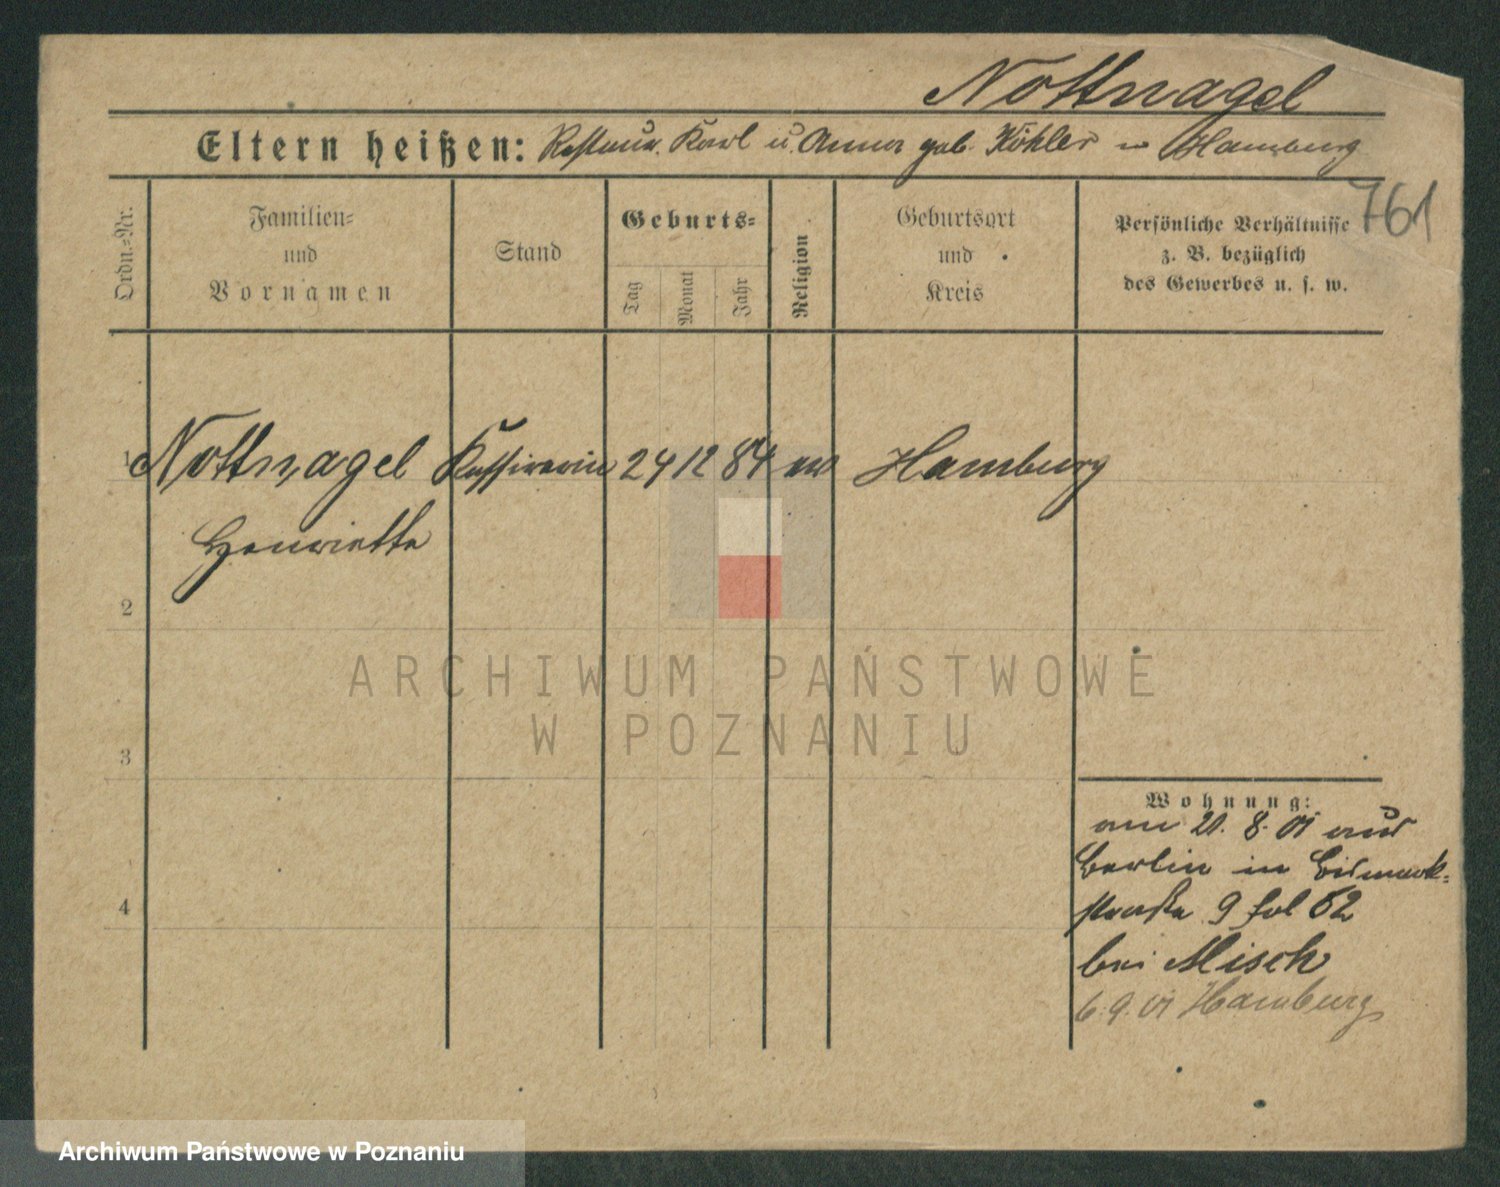 Nottnagel
Eltern heißen: Restaur. Karl u. Anna geb. Köhler in Hamburg
761
Ordn.=Nr.
Familien=
und
Vornamen
Stand
Geburts=
Tag
Monat
Jahr
Religion
Geburtsort
und
Kreis
Persönliche Verhältnisse
z. B. bezüglich
des Gewerbes u. s. w.
1 Nottnagel Kassirerin 24 12 84 Hamburg
Henriette
2
3
4
ARCHIWUM PAŃSTWOWE
W POZNANIU
Wohnung:
am 21. 8. 01 aus
Berlin in Bismark=
straße 9 fol 62
bei Misch
6.9.01 Hamburg
Archiwum Państwowe w Poznaniu